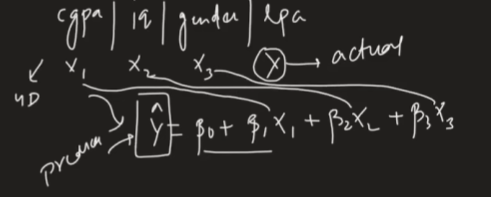 cgpa | iq | gender | lpa
X₁ X₂ X₃ Y → actual
4D
Ŷ = β₀ + β₁X₁ + β₂X₂ + β₃X₃